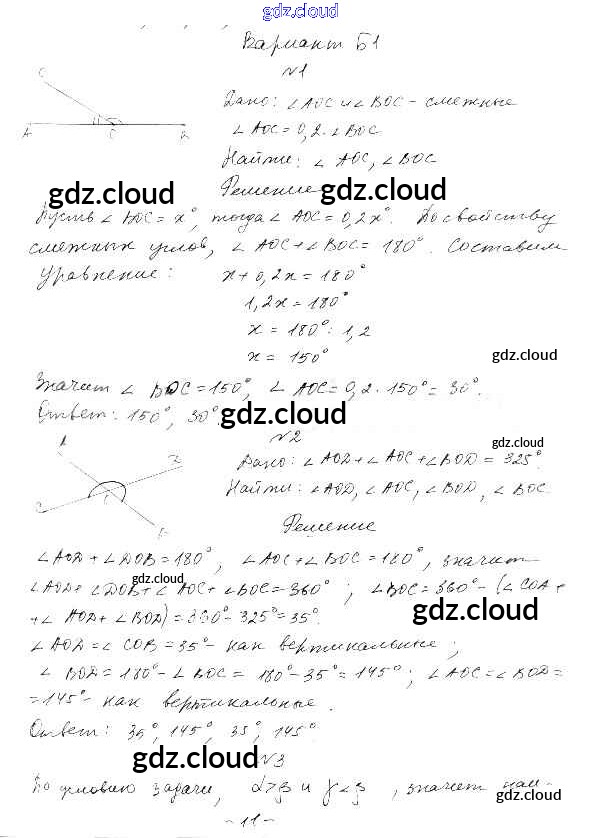 gdz.cloud
Вариант Б1
№1
Дано: ∠AOC и ∠BOC - смежные
∠AOC = 0,2 · ∠BOC
Найти: ∠AOC, ∠BOC
gdz.cloud
Решение
gdz.cloud
Пусть ∠BOC = x°, тогда ∠AOC = 0,2x°. По свойству
смежных углов, ∠AOC + ∠BOC = 180°. Составим
уравнение: x + 0,2x = 180°
1,2x = 180°
x = 180° : 1,2
x = 150°
gdz.cloud
Значит ∠BOC = 150°, ∠AOC = 0,2 · 150° = 30°.
Ответ: 150°, 30°.
gdz.cloud
№2
Дано: ∠AOD + ∠AOC + ∠BOD = 325°.
gdz.cloud
Найти: ∠AOD, ∠AOC, ∠BOD, ∠BOC.
Решение
∠AOD + ∠DOB = 180°, ∠AOC + ∠BOC = 180°, значит
gdz.cloud
∠AOD + ∠DOB + ∠AOC + ∠BOC = 360°; ∠BOC = 360° - (∠COA +
+ ∠AOD + ∠BOD) = 360° - 325° = 35°.
gdz.cloud
∠AOD = ∠COB = 35° - как вертикальные;
∠BOD = 180° - ∠BOC = 180° - 35° = 145°; ∠AOC = ∠BOD =
= 145° - как вертикальные.
Ответ: 35°, 145°, 35°, 145°.
gdz.cloud
№3
gdz.cloud
По условию задачи, α > β и γ < β, значит наи-
- 11 -
gdz.cloud